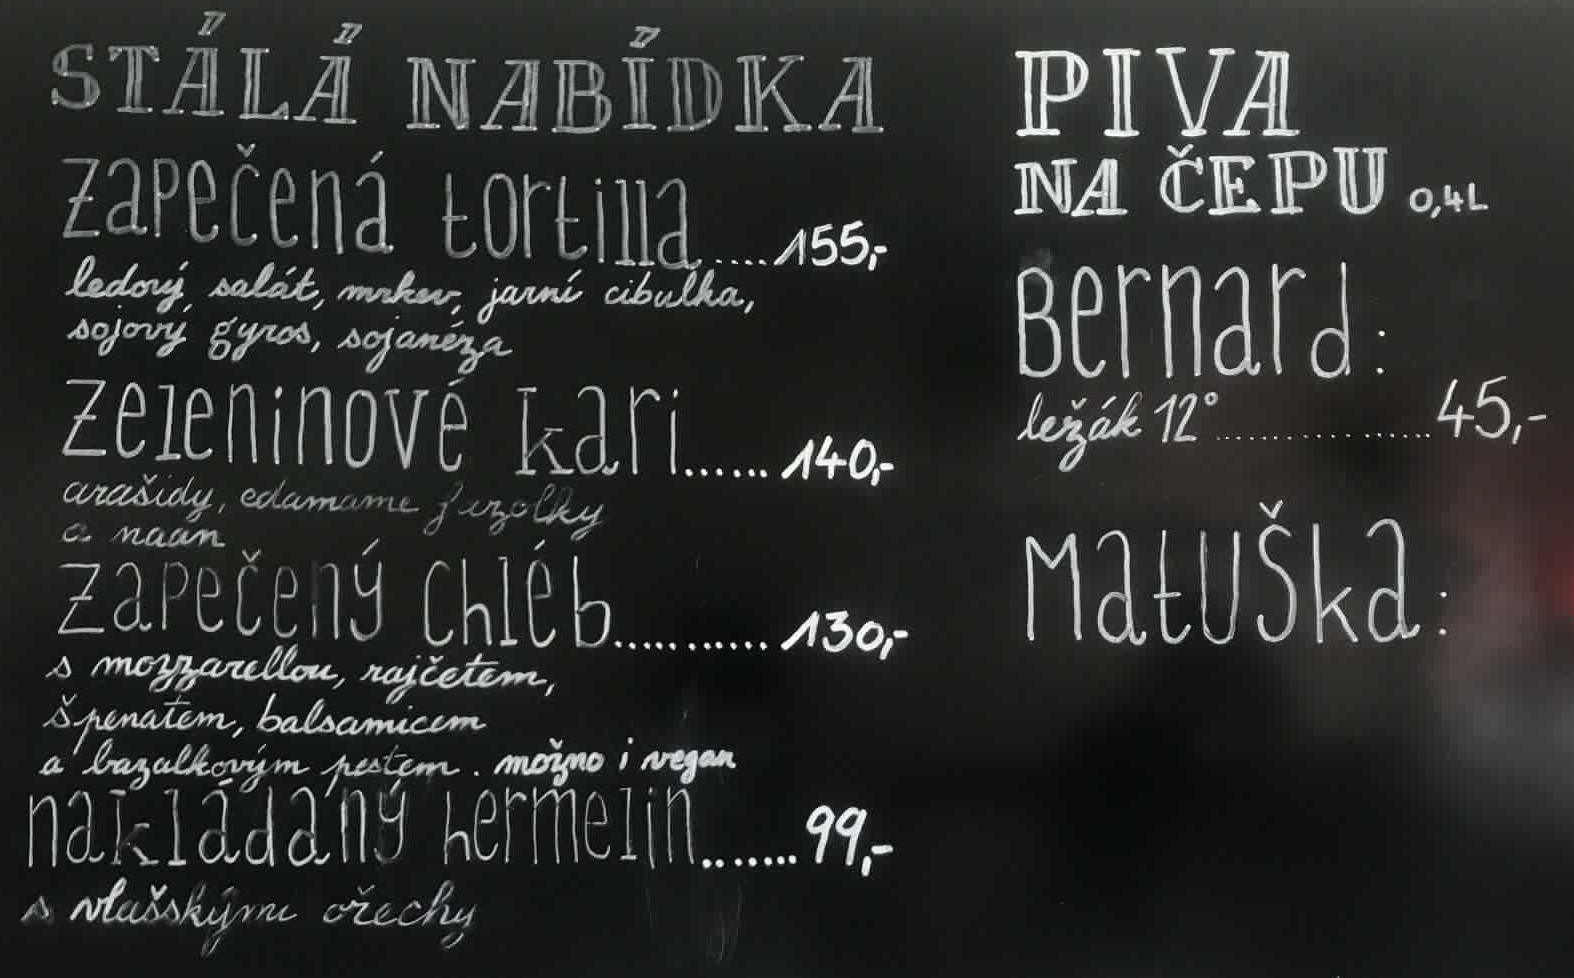 STÁLÁ NABÍDKA
zapečená tortilla.....155,-
ledový salát, mrkev, jarní cibulka,
sojový gyros, sojanéza
zeleninové kari......140,-
arašídy, edamame fazolky
a naan
zapečený chléb...........130,-
s mozzarellou, rajčetem,
špenátem, balsamicem
a bazalkovým pestem. možno i vegan
nakládaný hermelín.......99,-
s vlašskými ořechy
PIVA
NA ČEPU 0,4L
Bernard:
ležák 12°.................45,-
Matuška: